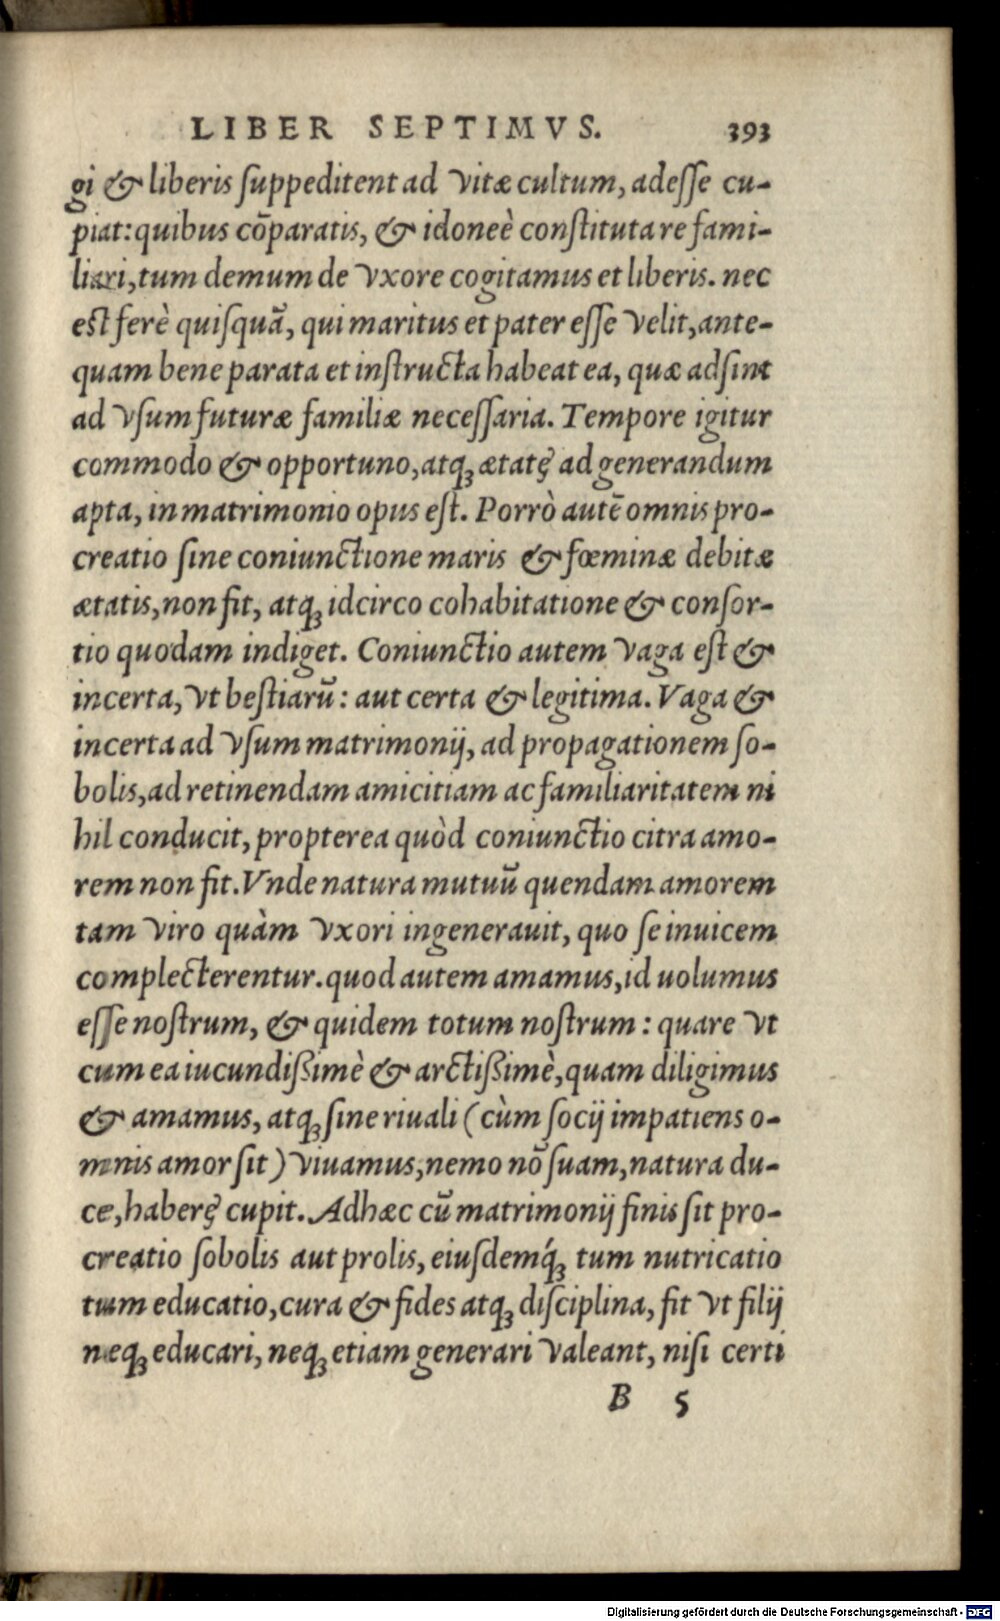 LIBER SEPTIMVS. 393
gi & liberis ſuppeditent ad vitæ cultum, adeſſe cu-
piat: quibus cōparatis, & idoneè conſtituta re fami-
liari, tum demum de vxore cogitamus et liberis. nec
eſt ferè quiſquā, qui maritus et pater eſſe velit, ante-
quam bene parata et inſtructa habeat ea, quæ adſint
ad vſum futuræ familiæ neceſſaria. Tempore igitur
commodo & opportuno, atq́; ætatę ad generandum
apta, in matrimonio opus eſt. Porrò autē omnis pro-
creatio ſine coniunctione maris & fœminæ debitæ
ætatis, non fit, atq; idcirco cohabitatione & conſor-
tio quodam indiget. Coniunctio autem vaga eſt &
incerta, vt beſtiarū: aut certa & legitima. Vaga &
incerta ad vſum matrimonij, ad propagationem ſo-
bolis, ad retinendam amicitiam ac familiaritatem ni
hil conducit, propterea quòd coniunctio citra amo-
rem non fit. Vnde natura mutuū quendam amorem
tam viro quàm vxori ingenerauit, quo ſe inuicem
complecterentur. quod autem amamus, id uolumus
eſſe noſtrum, & quidem totum noſtrum: quare vt
cum ea iucundißimè & arctißimè, quam diligimus
& amamus, atq; ſine riuali (cùm ſocij impatiens o-
mnis amor ſit) viuamus, nemo nō ſuam, natura du-
ce, haberę cupit. Adhæc cū matrimonij finis ſit pro-
creatio ſobolis aut prolis, eiuſdemq́; tum nutricatio
tum educatio, cura & fides atq; diſciplina, fit vt filij
neq; educari, neq; etiam generari valeant, niſi certi
B 5
Digitalisierung gefördert durch die Deutsche Forschungsgemeinschaft - DFG